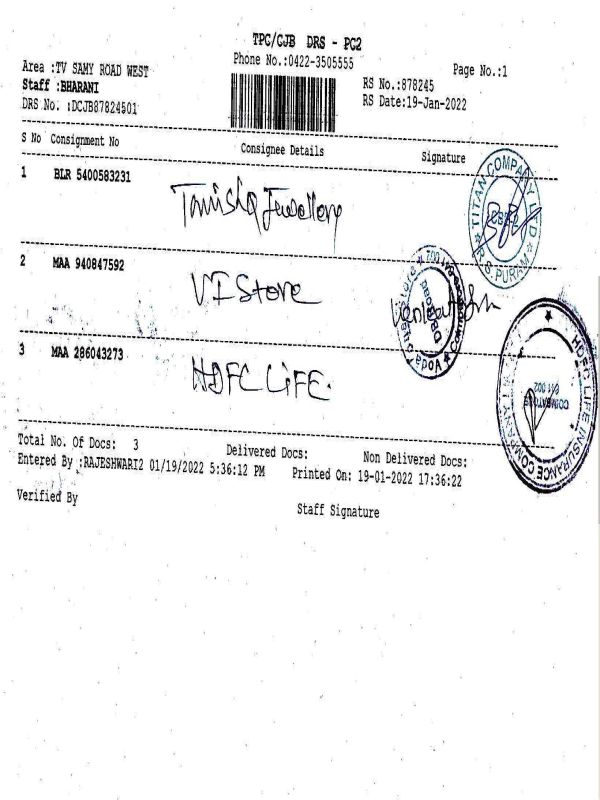 TPC/CJB DRS - PC2
Phone No.:0422-3505555
Area :TV SAMY ROAD WEST
Page No.:1
Staff :BHARANI
RS No.:878245
DRS No. :DCJB87824501
RS Date:19-Jan-2022
S No Consignment No Consignee Details Signature
1 BLR 5400583231
Tanishq Jewellery
TITAN COMPANY LTD
R.S. PURAM
2 MAA 940847592
VI Store
Vodafone
DB Road
3 MAA 286043273
HDFC LIFE.
HDFC LIFE INSURANCE COMPANY
COIMBATORE
641 002
Total No. Of Docs: 3 Delivered Docs: Non Delivered Docs:
Entered By :RAJESHWARI2 01/19/2022 5:36:12 PM Printed On: 19-01-2022 17:36:22
Verified By Staff Signature